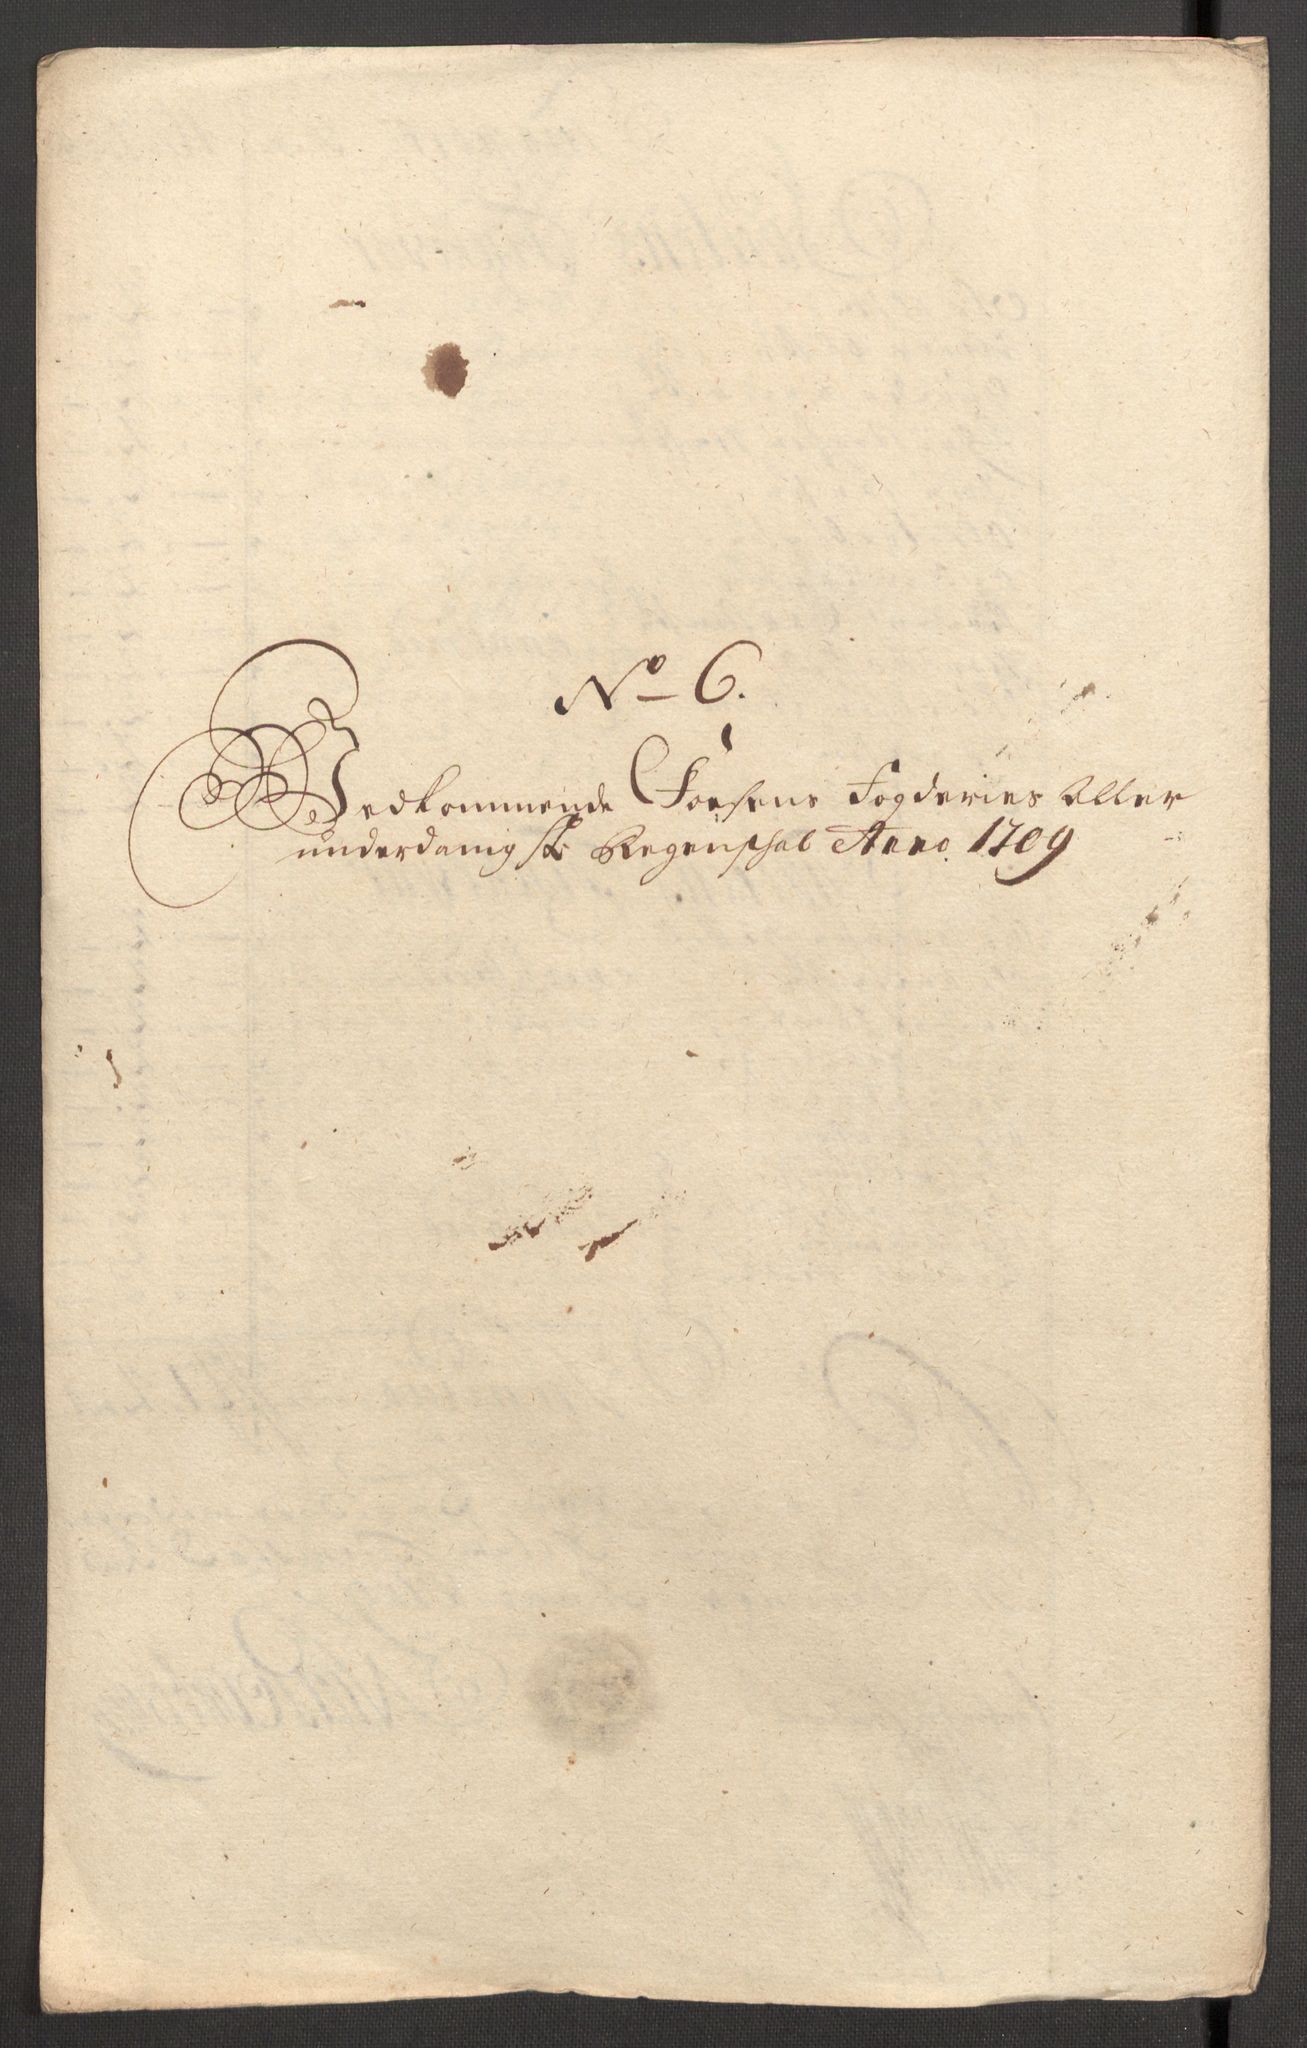 No 6.
Vedkommende Foesens Fogderies Aller
underdanigste Regenschab Anno 1709